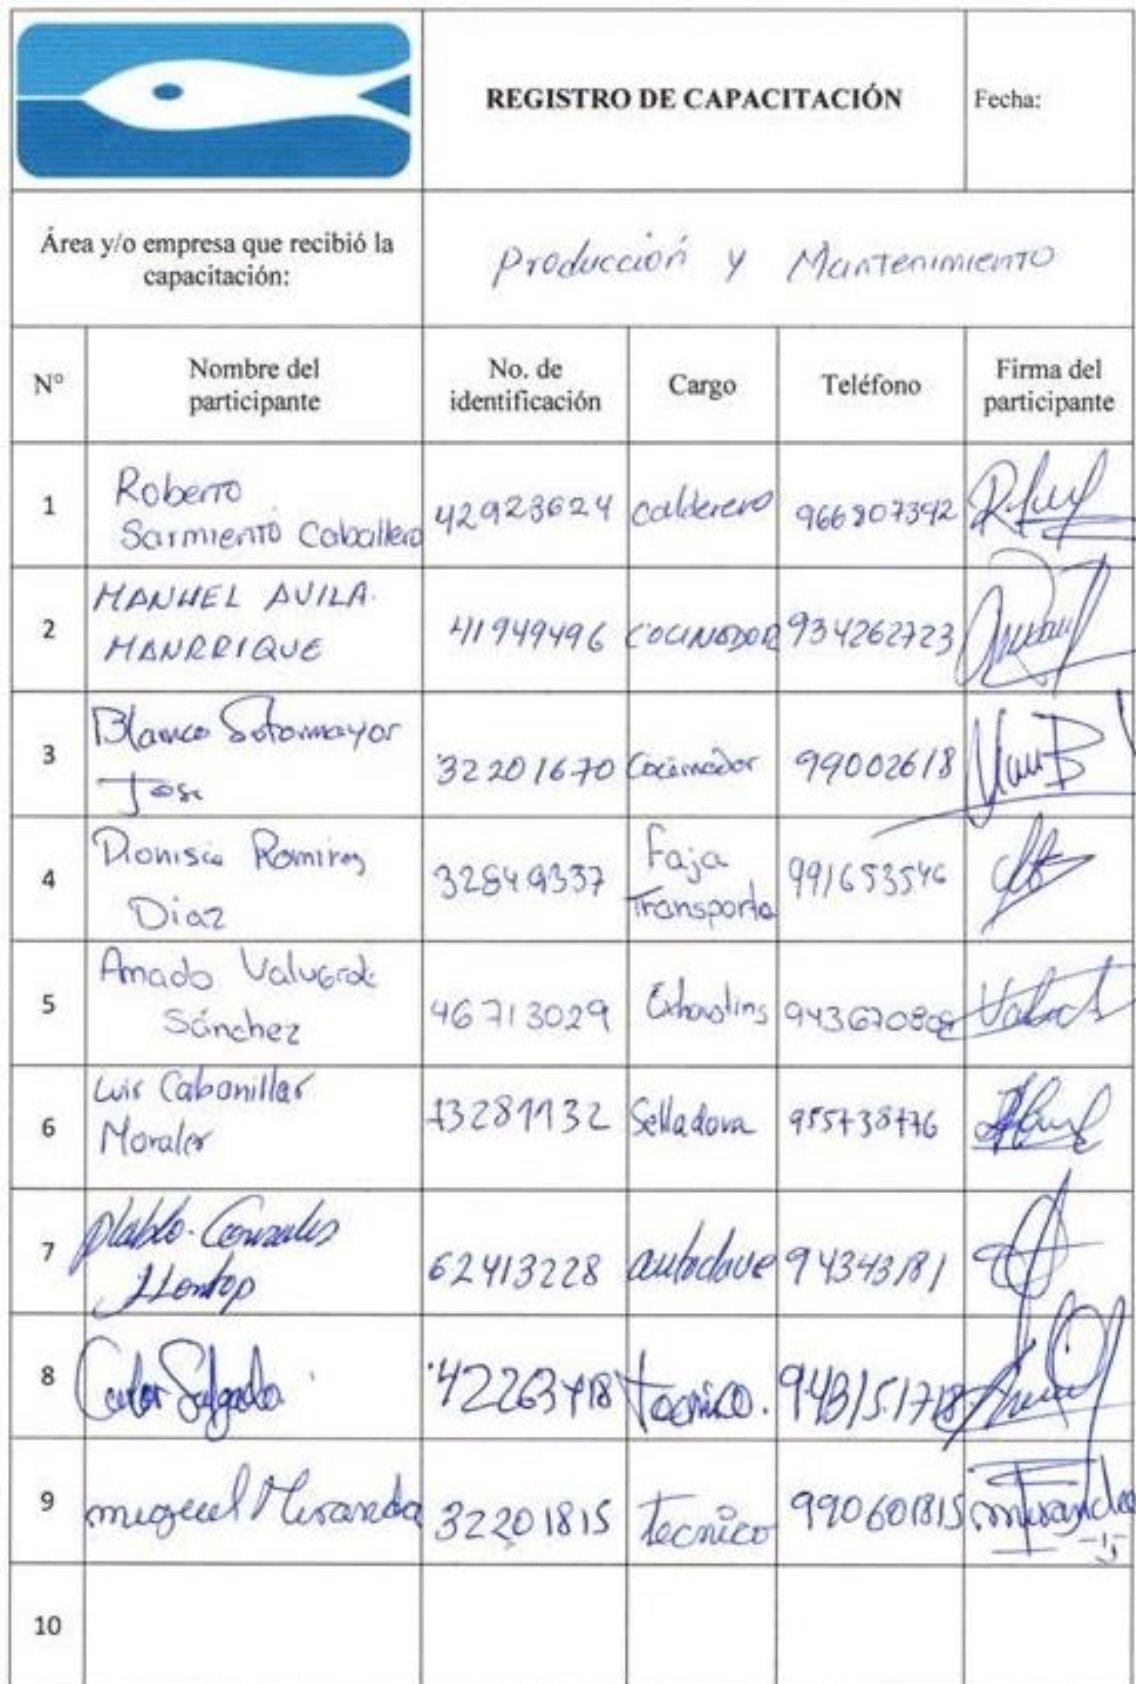 REGISTRO DE CAPACITACIÓN
Fecha:
Área y/o empresa que recibió la
capacitación:
Producción y Mantenimiento
N°
Nombre del
participante
No. de
identificación
Cargo
Teléfono
Firma del
participante
1
Roberto
Sarmiento Caballero
42923624
calderero
966807392
2
MANUEL AVILA.
MANRRIQUE
41949496
COCINADOR
934262723
3
Blanco Sotomayor
Jose
32201670
Cocinador
99002618
4
Dionisio Romirez
Diaz
32849337
Faja
Transporta
991653546
5
Amado Valverde
Sánchez
46713029
943670808
6
Luis Cabanillas
Morales
73281132
Selladora
955738776
7
Pablo Gonzales
Llontop
62413228
autoclave
94343181
8
Carlos Salgado
42263418
Tecnico.
943151718
9
miguel Miranda
32201815
Tecnico
990601815
miranda
10